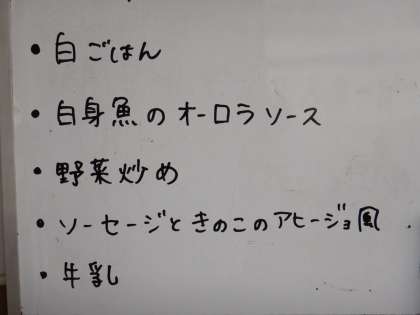 • 白ごはん
• 白身魚のオーロラソース
• 野菜炒め
• ソーセージときのこのアヒージョ風
• 牛乳